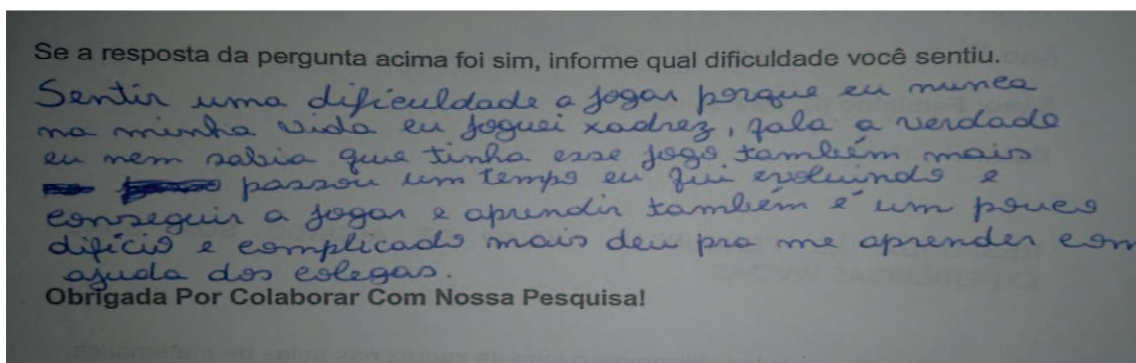 Se a resposta da pergunta acima foi sim, informe qual dificuldade você sentiu.
Sentir uma dificuldade a jogar porque eu nunca
na minha vida eu joguei xadrez, fala a verdade
eu nem sabia que tinha esse jogo também mais
passou um tempo eu fui evoluindo e
conseguir a jogar e aprendir também é um pouco
difício e complicado mais deu pra me aprender com
ajuda dos colegas.
Obrigada Por Colaborar Com Nossa Pesquisa!